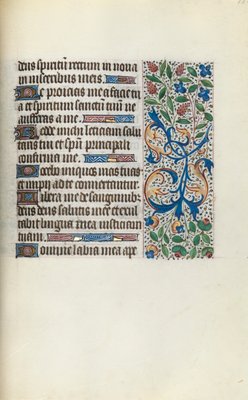 deus spiritum rectum in nova
in visceribus meis.
Ne proicias me a facie tu
a et spiritum sanctum tuum ne
auferas a me.
Redde michi leticiam salu
taris tui et spu principali
confirma me.
Docebo iniquos vias tuas
et impii ad te convertentur.
Libera me de sanguinib
deus deus salutis mee et exul
tabit lingua mea iusticiam
tuam.
Domine labia mea ape